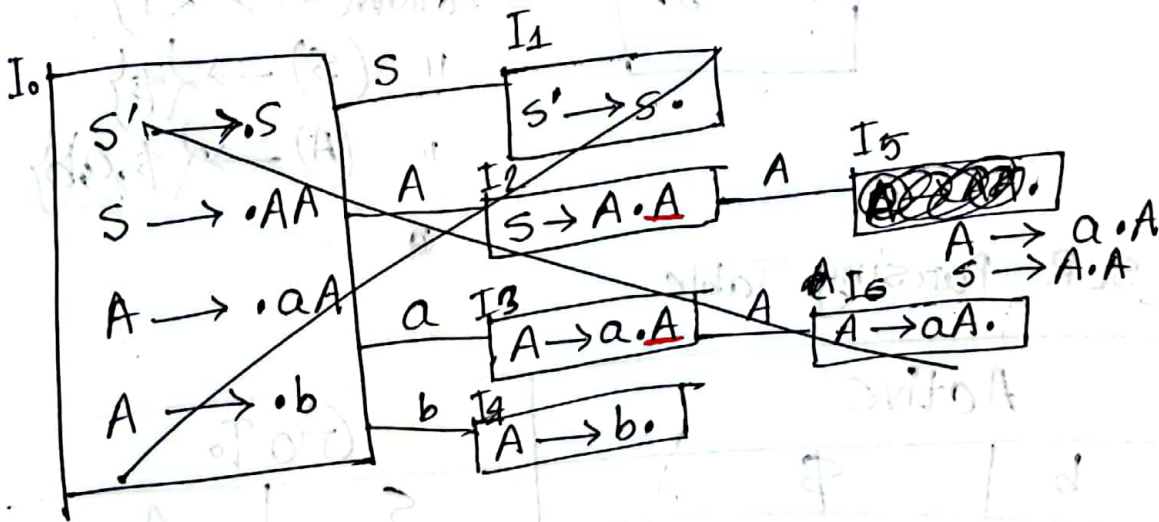 I0
S' → .S
S → .AA
A → .aA
A → .b
S
I1
S' → S.
A
I2
S → A.A
A
I5
A → a.A
S → A.A
a
I3
A → a.A
A
I6
A → aA.
b
I4
A → b.